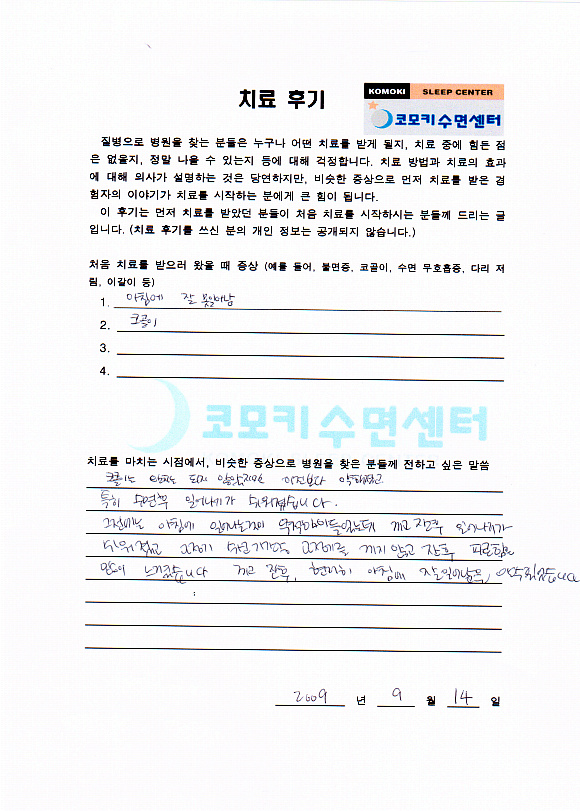 치료 후기
KOMOKI SLEEP CENTER
코모키수면센터
질병으로 병원을 찾는 분들은 누구나 어떤 치료를 받게 될지, 치료 중에 힘든 점
은 없을지, 정말 나을 수 있는지 등에 대해 걱정합니다. 치료 방법과 치료의 효과
에 대해 의사가 설명하는 것은 당연하지만, 비슷한 증상으로 먼저 치료를 받은 경
험자의 이야기가 치료를 시작하는 분에게 큰 힘이 됩니다.
이 후기는 먼저 치료를 받았던 분들이 처음 치료를 시작하시는 분들께 드리는 글
입니다. (치료 후기를 쓰신 분의 개인 정보는 공개되지 않습니다.)
처음 치료를 받으러 왔을 때 증상 (예를 들어, 불면증, 코골이, 수면 무호흡증, 다리 저
림, 이갈이 등)
1. 아침에 잘 못일어남
2. 코골이
3.
4.
코모키수면센터
치료를 마치는 시점에서, 비슷한 증상으로 병원을 찾은 분들께 전하고 싶은 말씀
않았지만 이전보다
특히 수면후 일어나기가 쉬워졌습니다.
그전에는 아침에 끼고 잔후 일어나기가
쉬워졌고 끼지 않고 잔후
느껴졌습니다 끼고 잔후, 현저히 아침에
2009 년 9 월 14 일